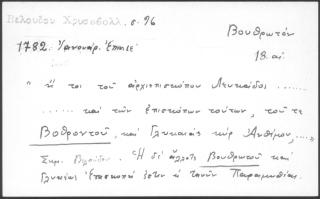 Βελούδου Χρυσοβολλ. σ. 96
Βουθρωτόν
1782. Ἰανουάρ.
18. αἰ.
" ἤ τοι τοῦ ἀρχιεπισκόπου Λευκάδος ......
...... καὶ τῶν ἐπισκόπων τούτων, τοῦ τε
Βοθροντοῦ, καὶ Γλυκαιᾶς κὺρ Ἀνθίμου, ....."
Σημ. Βελούδου. Ἡ δὲ ἄλλοτε Βουθρωτοῦ καὶ
Γλυκέως Ἐπισκοπὴ ἐστιν ἡ τανῦν Παραμυθίας.